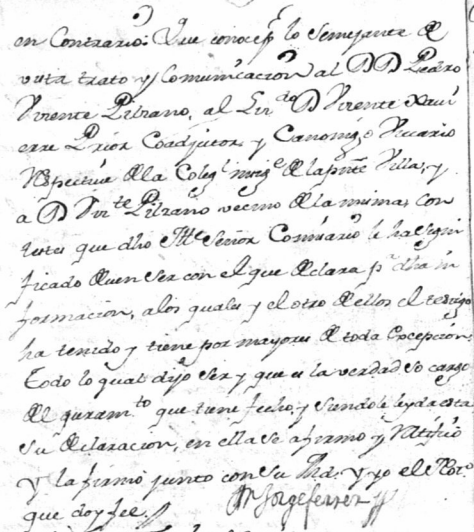 en Contrario: Que conoce pr lo Semejante de
vista trato y Comunicacion al D D Pedro
Vicente Pitzano, al Licdo D Vicente Xavi
erre Prior Coadjutor y Canonigo Vicario
Respective de la Colegl insige de la pnte Villa, y
a D Virte Pitzano vecino de la misma, con
testes que dho Ille Señor Comisario le ha signi
ficado deven ser con el que declara pa dha in
formacion, a los quales y el otro de ellos el testigo
ha tenido y tiene por mayores de toda excepcion.
Todo lo qual dijo ser y que es la verdad so cargo
del juramto que tiene fecho, y siendole leyda esta
su declaracion, en ella se afirmó y ratificó
y la firmó junto con su Md. y yo el Noto
que doy fee.
Mn Jorge ferrer